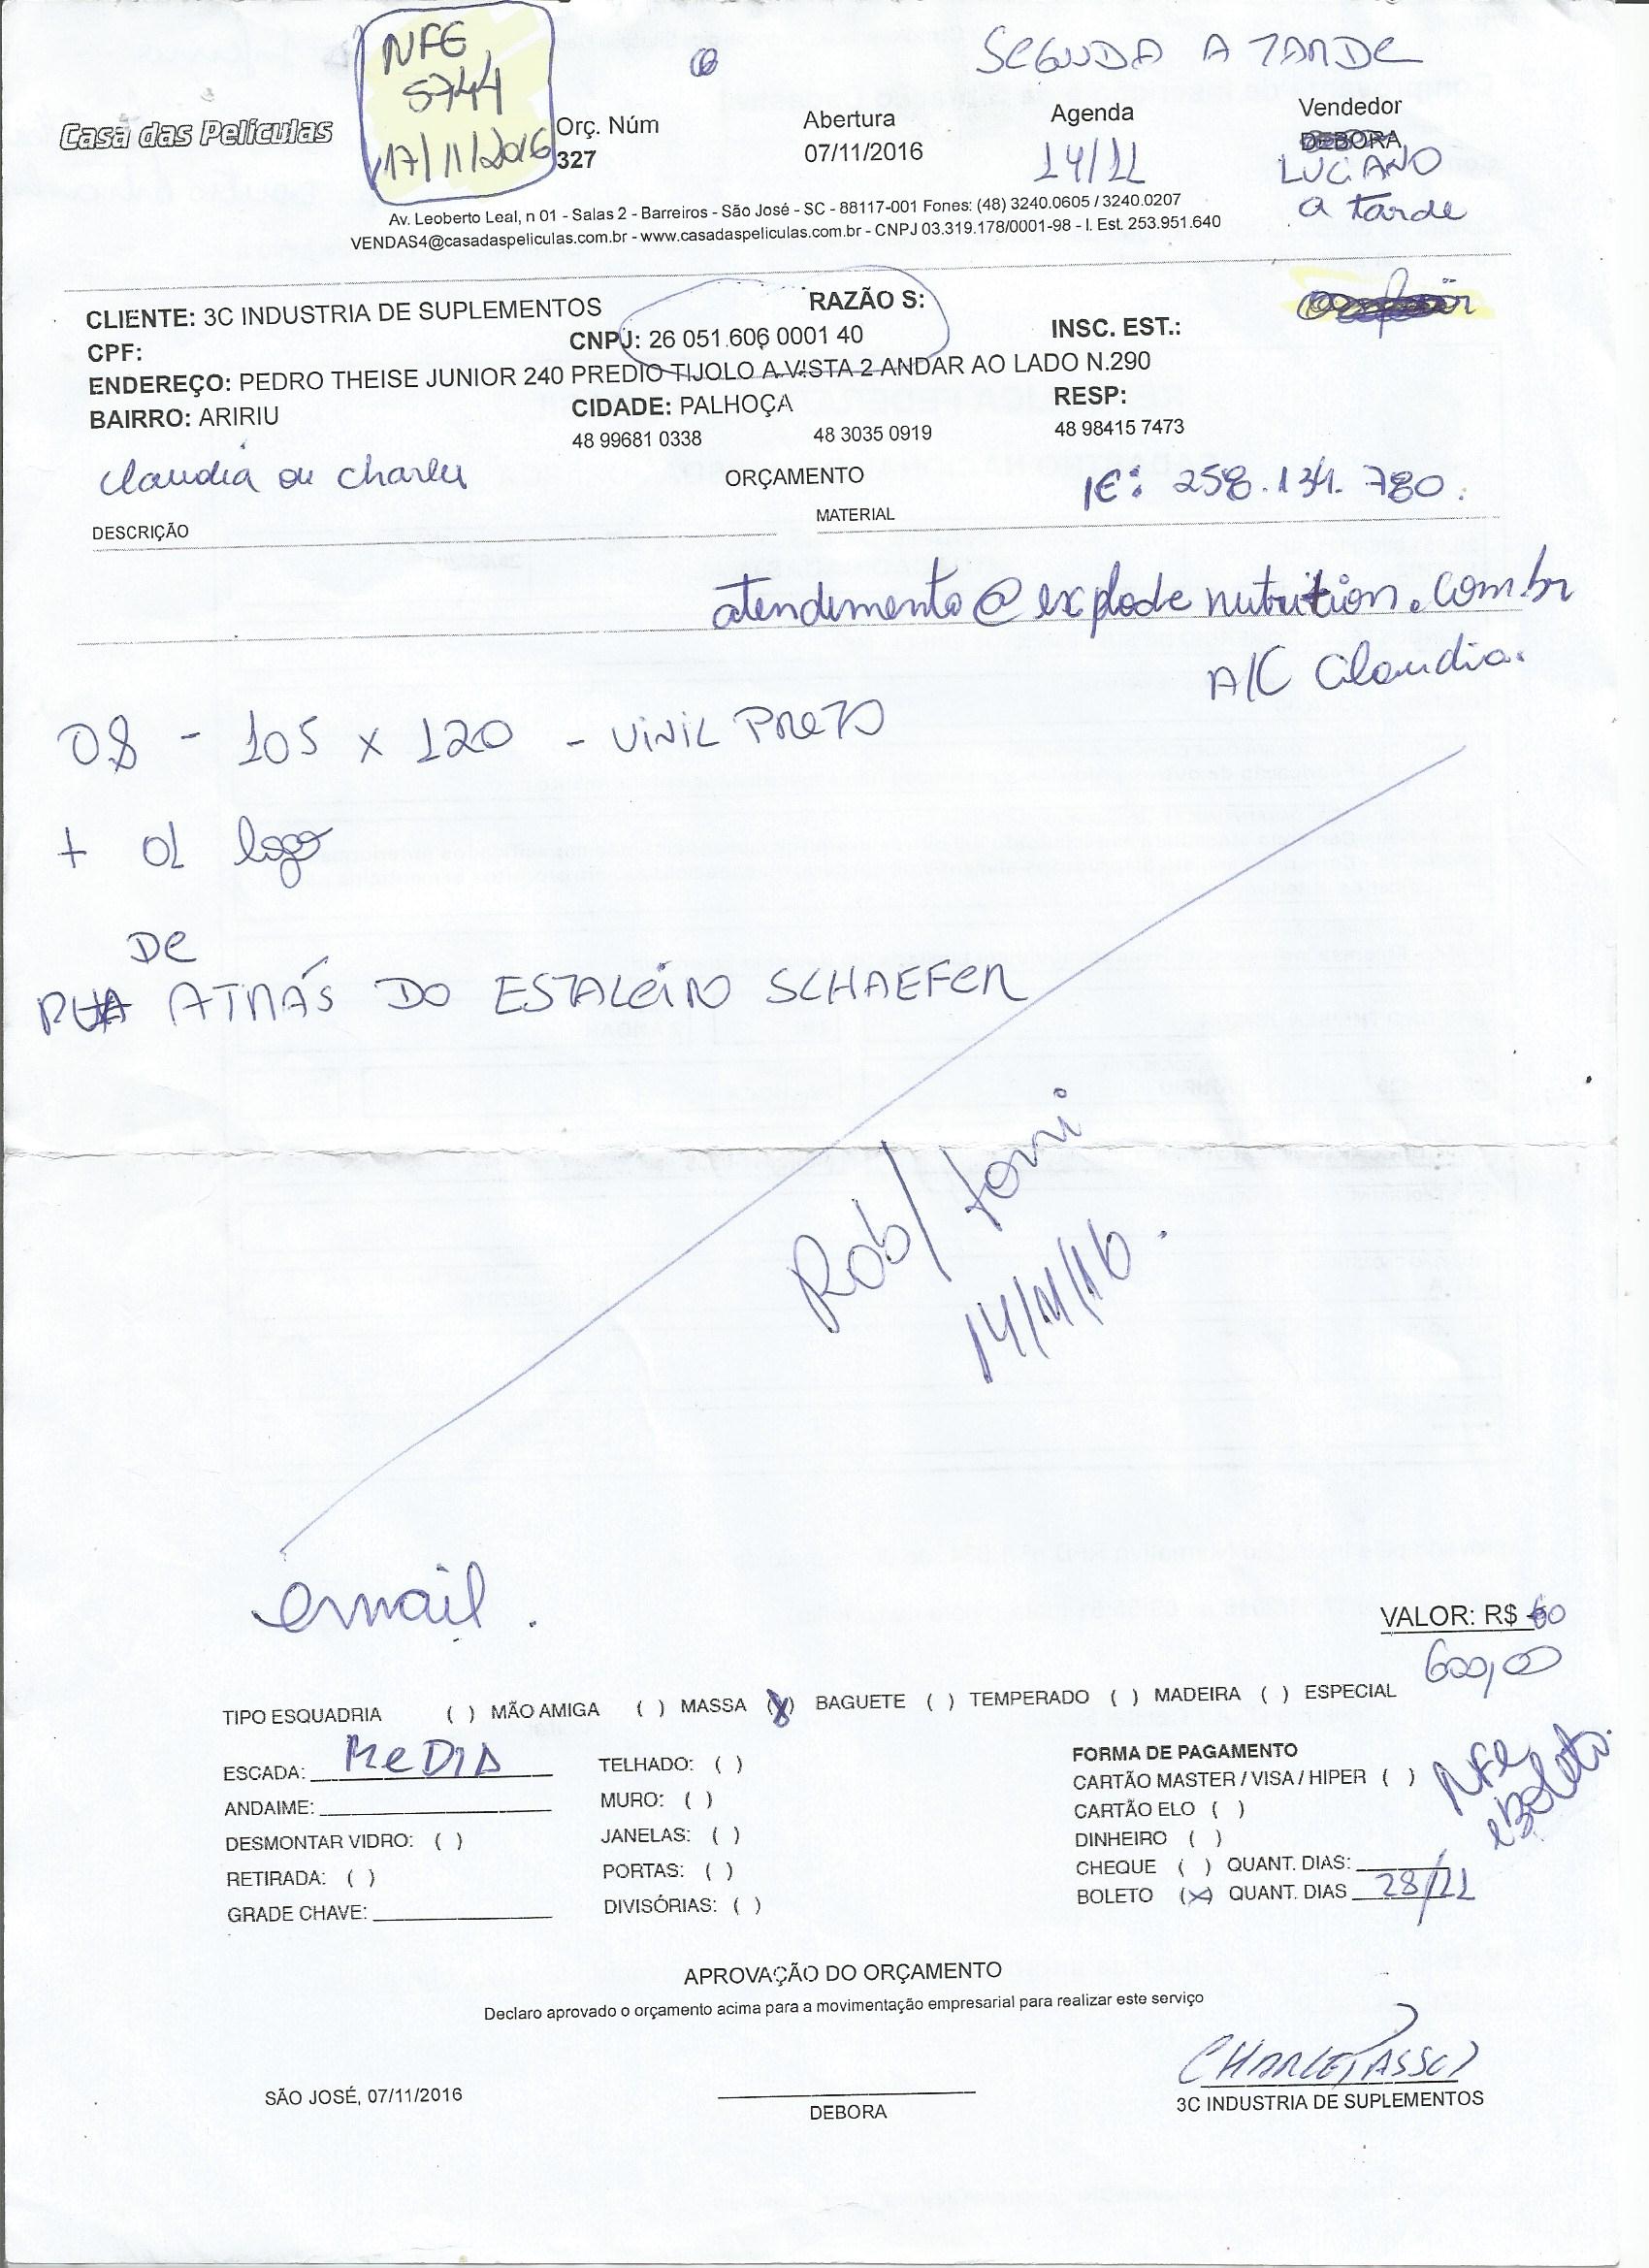 NFE
5744
17/11/2016
SEGUNDA A TARDE
Casa das Películas
Orç. Núm
327
Abertura
07/11/2016
Agenda
14/11
Vendedor
DEBORA
LUCIANO
a tarde
Av. Leoberto Leal, n 01 - Salas 2 - Barreiros - São José - SC - 88117-001 Fones: (48) 3240.0605 / 3240.0207
VENDAS4@casadaspeliculas.com.br - www.casadaspeliculas.com.br - CNPJ 03.319.178/0001-98 - I. Est. 253.951.640
CLIENTE: 3C INDUSTRIA DE SUPLEMENTOS RAZÃO S:
CPF: CNPJ: 26 051 606 0001 40 INSC. EST.:
ENDEREÇO: PEDRO THEISE JUNIOR 240 PREDIO TIJOLO A VISTA 2 ANDAR AO LADO N.290
BAIRRO: ARIRIU CIDADE: PALHOÇA RESP:
48 99681 0338 48 3035 0919 48 98415 7473
Claudia ou Charles ORÇAMENTO IE: 258.134.780.
DESCRIÇÃO MATERIAL
atendimento@explodenutrition.com.br
A/C Claudia.
08 - 105 x 120 - VINIL PRETO
+ 01 logo
DE
RUA ATRÁS DO ESTALEIRO SCHAEFER
Rob/
14/11/16.
email.
VALOR: R$ 60
600,00
TIPO ESQUADRIA ( ) MÃO AMIGA ( ) MASSA (X) BAGUETE ( ) TEMPERADO ( ) MADEIRA ( ) ESPECIAL
ESCADA: MEDIA TELHADO: ( ) FORMA DE PAGAMENTO
CARTÃO MASTER / VISA / HIPER ( )
NFe
e Boleto.
ANDAIME: MURO: ( ) CARTÃO ELO ( )
DESMONTAR VIDRO: ( ) JANELAS: ( ) DINHEIRO ( )
RETIRADA: ( ) PORTAS: ( ) CHEQUE ( ) QUANT. DIAS:
GRADE CHAVE: DIVISÓRIAS: ( ) BOLETO (X) QUANT. DIAS 28/11
APROVAÇÃO DO ORÇAMENTO
Declaro aprovado o orçamento acima para a movimentação empresarial para realizar este serviço
SÃO JOSÉ, 07/11/2016
DEBORA
3C INDUSTRIA DE SUPLEMENTOS